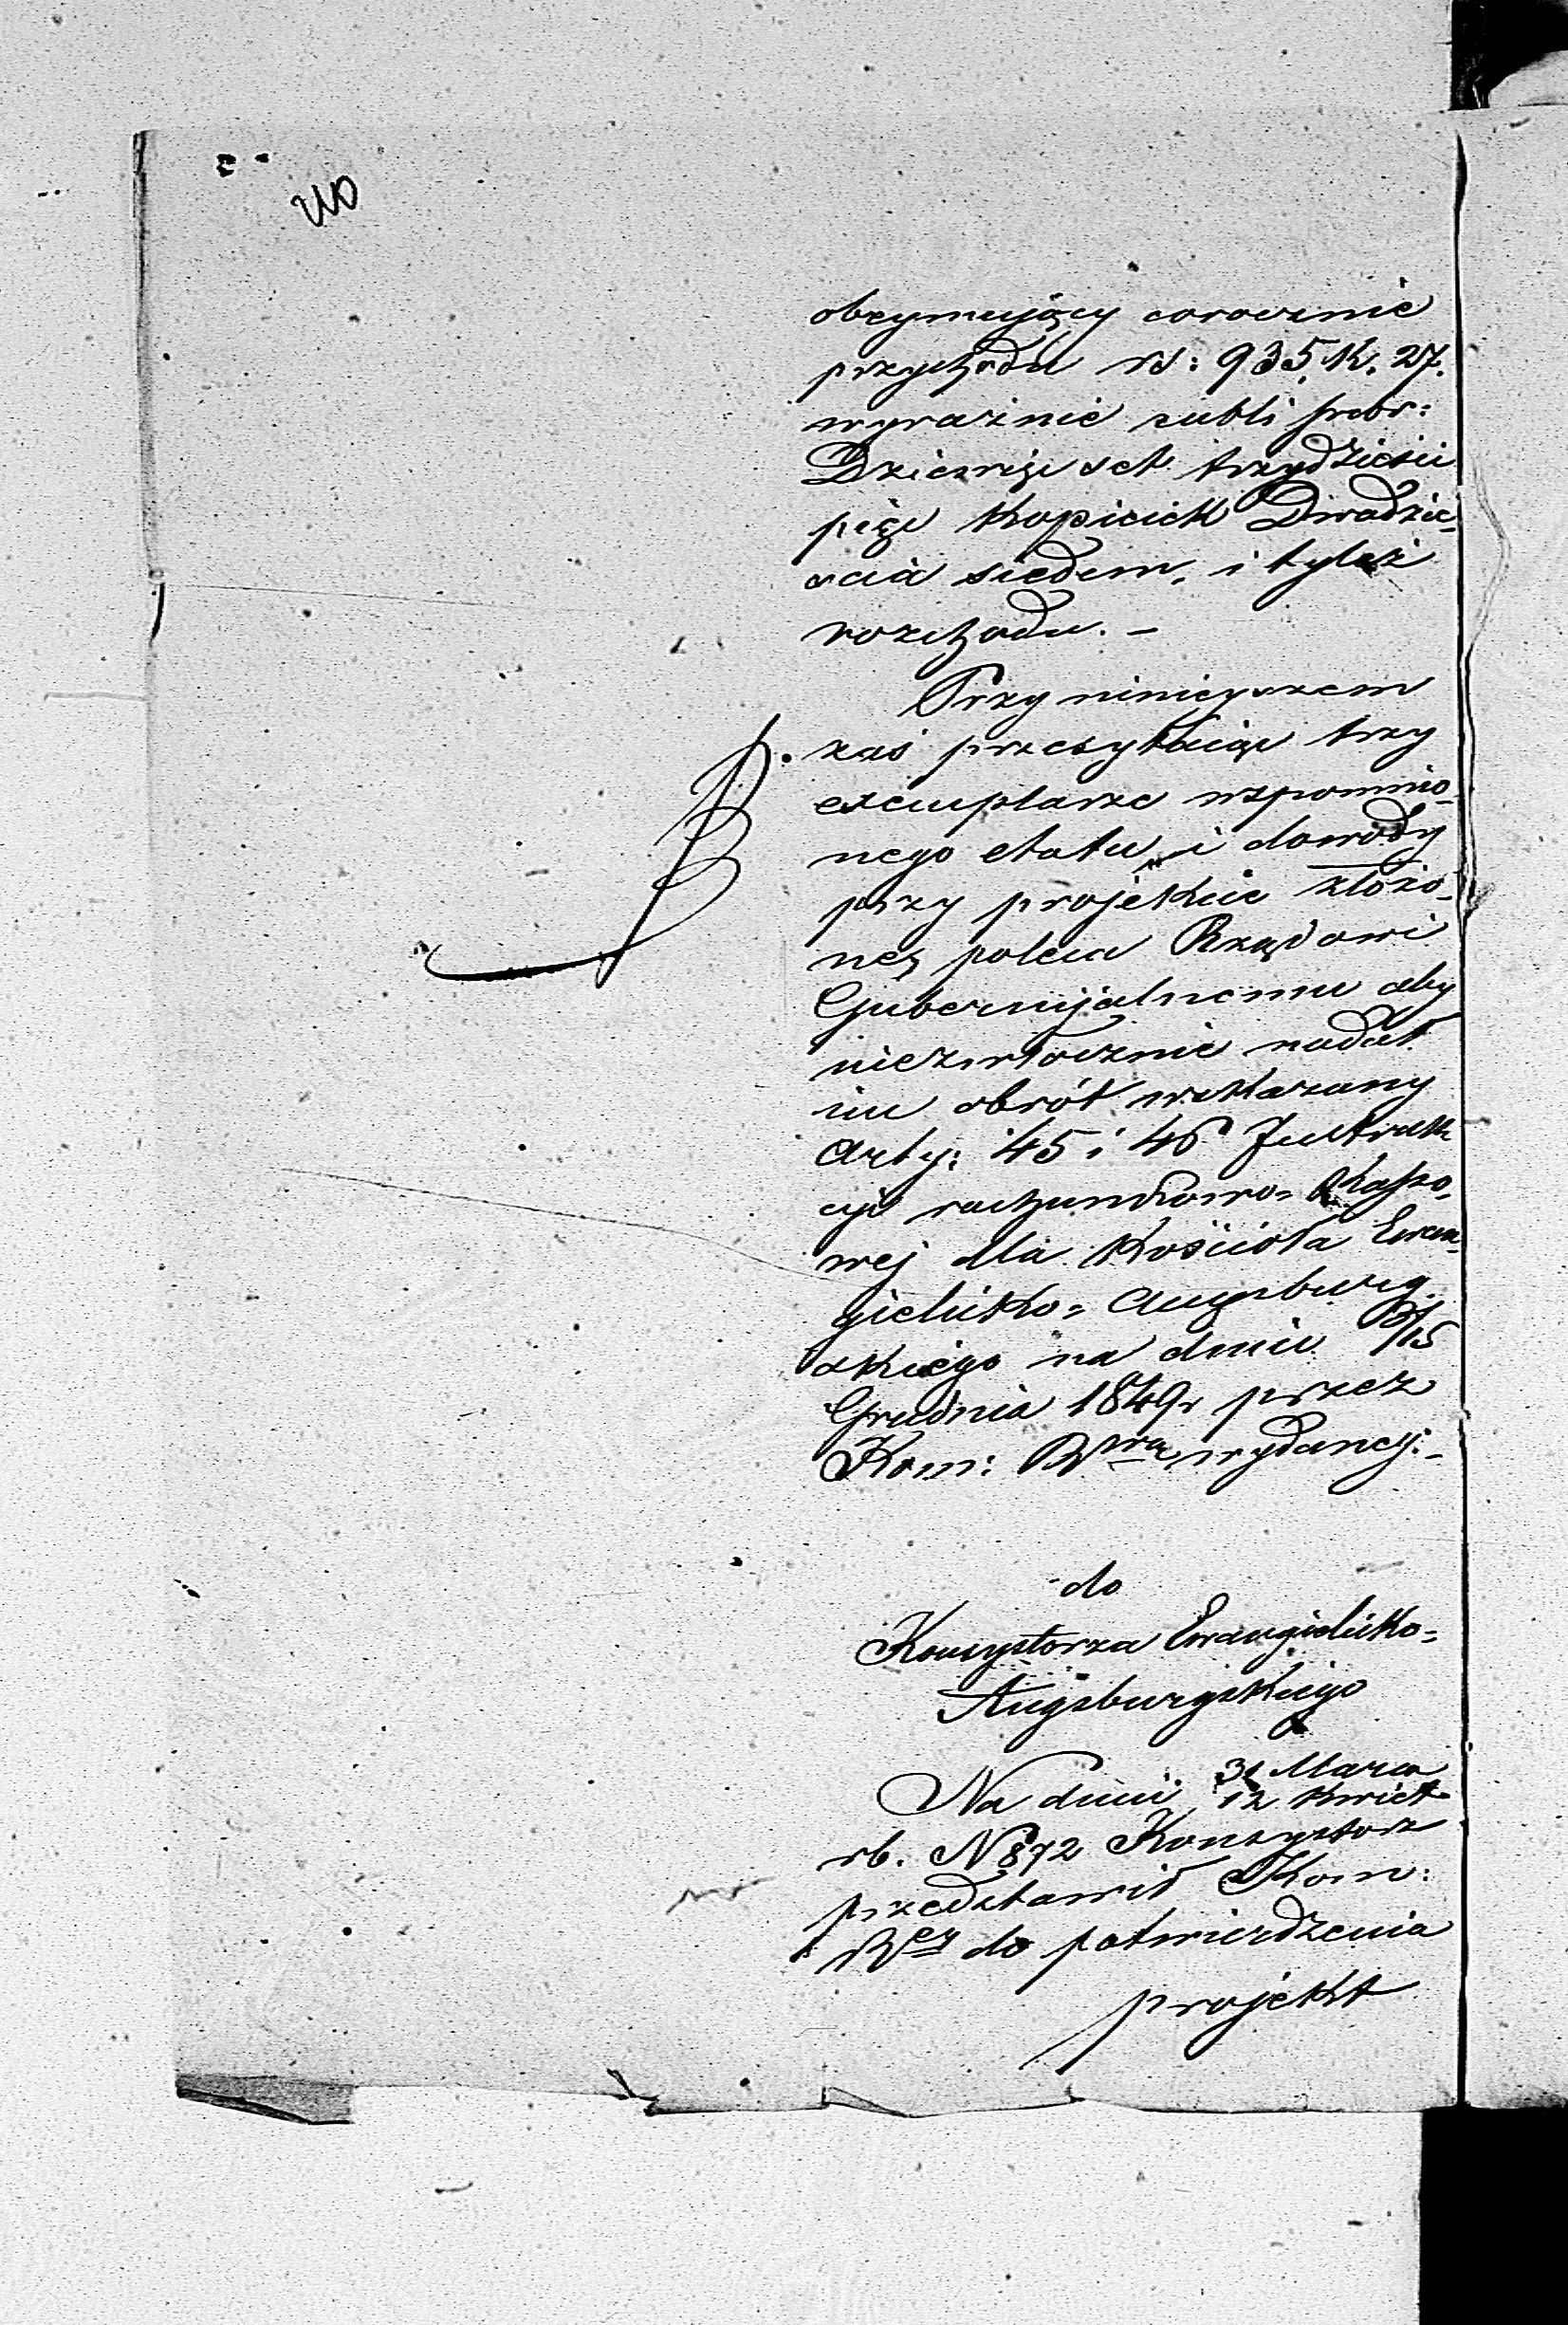 obeymujący corocznie
przychodu rs: 935. K. 27.
wyraźnie rubli srebr:
Dziewięćset trzydzieści
pięć Kopieiek Dwadzie-
ścia siedem, i tyleż
rozchodu. –
Przy ninieyszem
zaś przesyłaiąc trzy
exemplarze wspomnio-
nego etatu i dowody
przy projekcie złożo-
ne, poleca Rządowi
Gubernijalnemu aby
niezwłocznie nadał
im obrót wskazany
Arty: 45 i 46 Instruk
cyi rachunkowo= Kasso-
wej dla Kościoła Ewan-
gielicko= Augsburg
skiego na dniu 3/15
Grudnia 1849r przez
Kom: Rwą wydanej:–
do
Konsystorza Ewangielicko=
Augsburgskiego
Na dniu 31 Marca
12 Kwiet
rb. N 872 Konsystorz
przedstawił Kom:
Rey do potwierdzenia
projekt